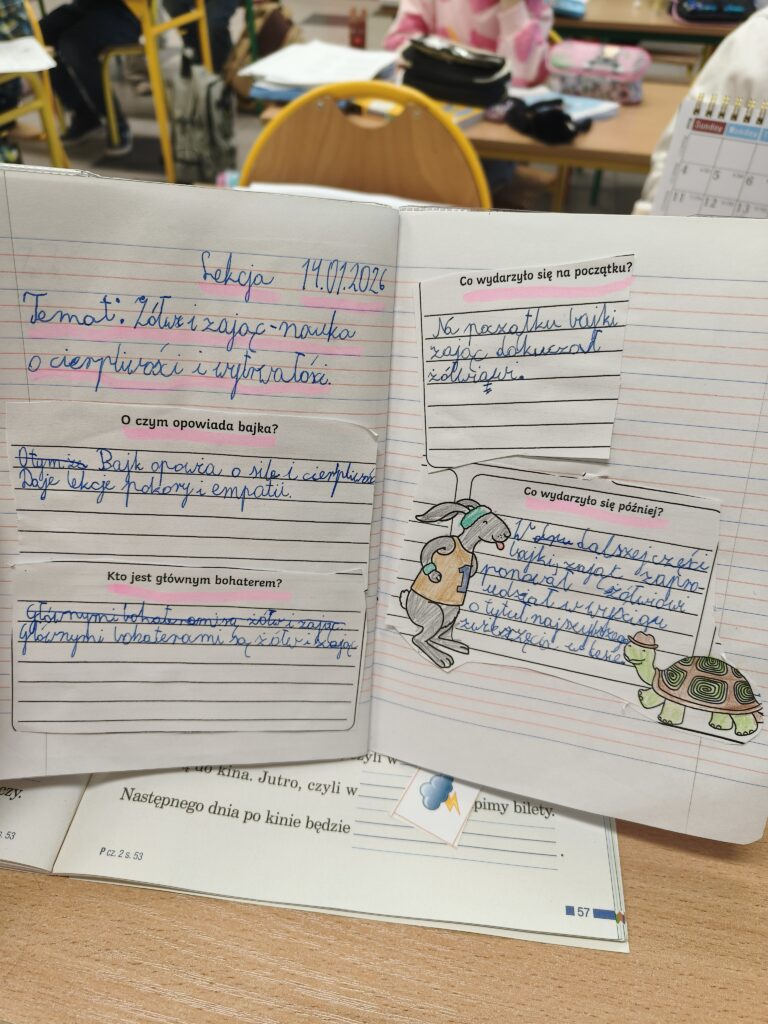 Lekcja 14.01.2026
Temat: Żółw i zając-nauka
o cierpliwości i wytrwałości.
O czym opowiada bajka?
Bajk opowia o sile i cierpliwośc
Daje lekcje pokory i empatii.
Kto jest głównym bohaterem?
Głównymi bohaterami są żółw i zając.
Głównymi bohaterami są żółw i zając
Co wydarzyło się na początku?
Na początku bajki
zając dokuczał
żółwiowi.
Co wydarzyło się później?
W dalszej części
bajki zając zapro-
ponował żółwiowi
udział w wyścigu
o tytuł najszybszego
zwierzęcia w lesie.
1
Sunday Monday
4 5 6
11 12 13
do kina. Jutro, czyli w
pimy bilety.
Następnego dnia po kinie będzie
.
czy.
s. 53
P cz. 2 s. 53
57